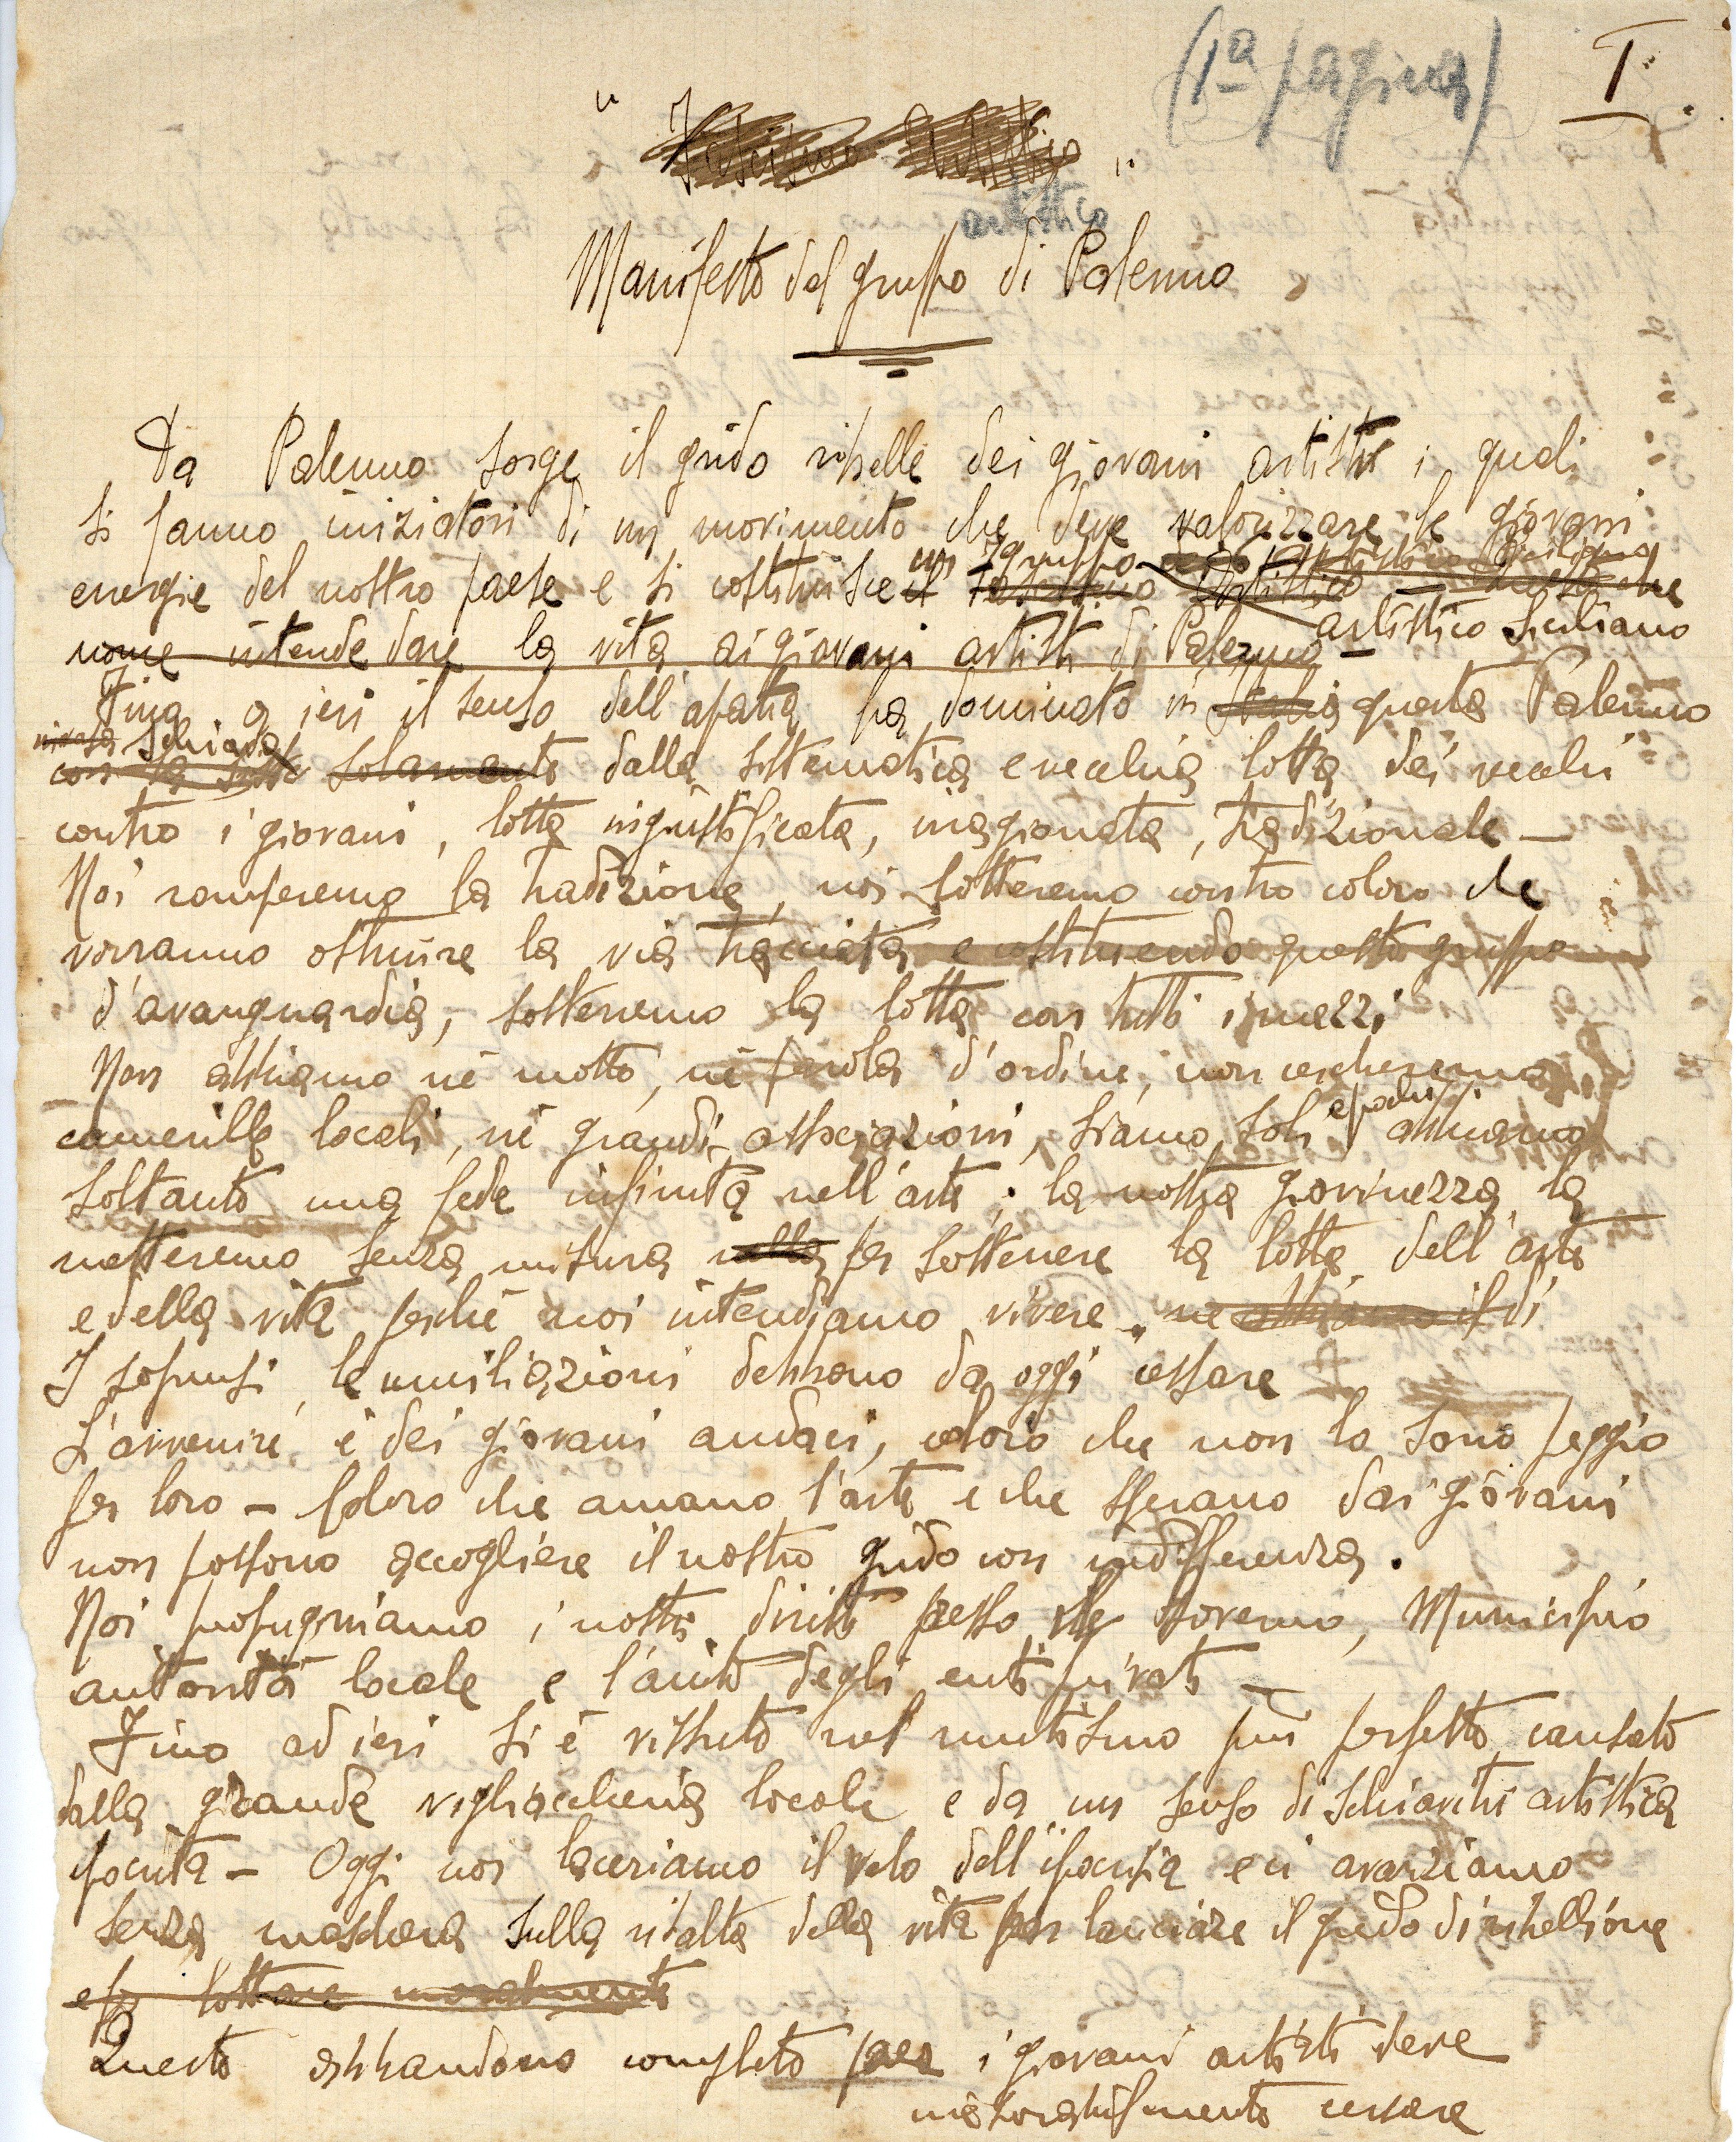 (1ª pagina) I.
" Fascismo Artistico "
artistico
Manifesto del gruppo di Palermo
Da Palermo sorge il grido ribelle dei giovani artisti i quali
si fanno iniziatori di un movimento che deve valorizzare le giovani
un gruppo artistico Siciliano
energie del nostro paese e si costituisce il fascismo Artistico — questo che
artistico Siciliano
nome intende dare la vita ai giovani artisti di Palermo —
Fino a ieri il senso dell'apatia ha dominato in questa Palermo
schiava
con la solamente dalla sistematica e vecchia lotta dei vecchi
contro i giovani, lotta ingiustificata, irragionata, tradizionale —
Noi romperemo la tradizione, noi lotteremo contro coloro che
vorranno ostruire la via tracciata e costituendo questo gruppo
d'avanguardia, sosterremo la lotta con tutti i mezzi
Non abbiamo nè motto, nè parola d'ordine, non cercheremo
camerille locali, nè grandi associazioni, siamo soli e pochi abbiamo
soltanto una fede infinita nell'arte; la nostra giovinezza la
metteremo senza misura nella per sostenere la lotta dell'arte
e della vita perchè noi intendiamo vivere. ne abbiamo il di
I soprusi, le umiliazioni debbono da oggi cessare
L'avvenire è dei giovani audaci, coloro che non lo sono peggio
per loro — Coloro che amano l'arte e che sperano dai giovani
non possono accogliere il nostro grido con indifferenza.
Noi propugniamo i nostri diritti presso il Governo, Municipio
autorità locale e l'aiuto degli enti privati —
Fino ad ieri si è vissuto nel mutismo più perfetto causato
dalla grande vigliaccheria locale e da un senso di schiavitù artistica
ipocrita — Oggi noi laceriamo il velo dell'ipocrisia e ci avanziamo
senza maschera sulla ribalta della vita per lanciare il grido di ribellione
e per lottare moralmente
Questo abbandono completo per i giovani artisti deve
inesorabilmente cessare